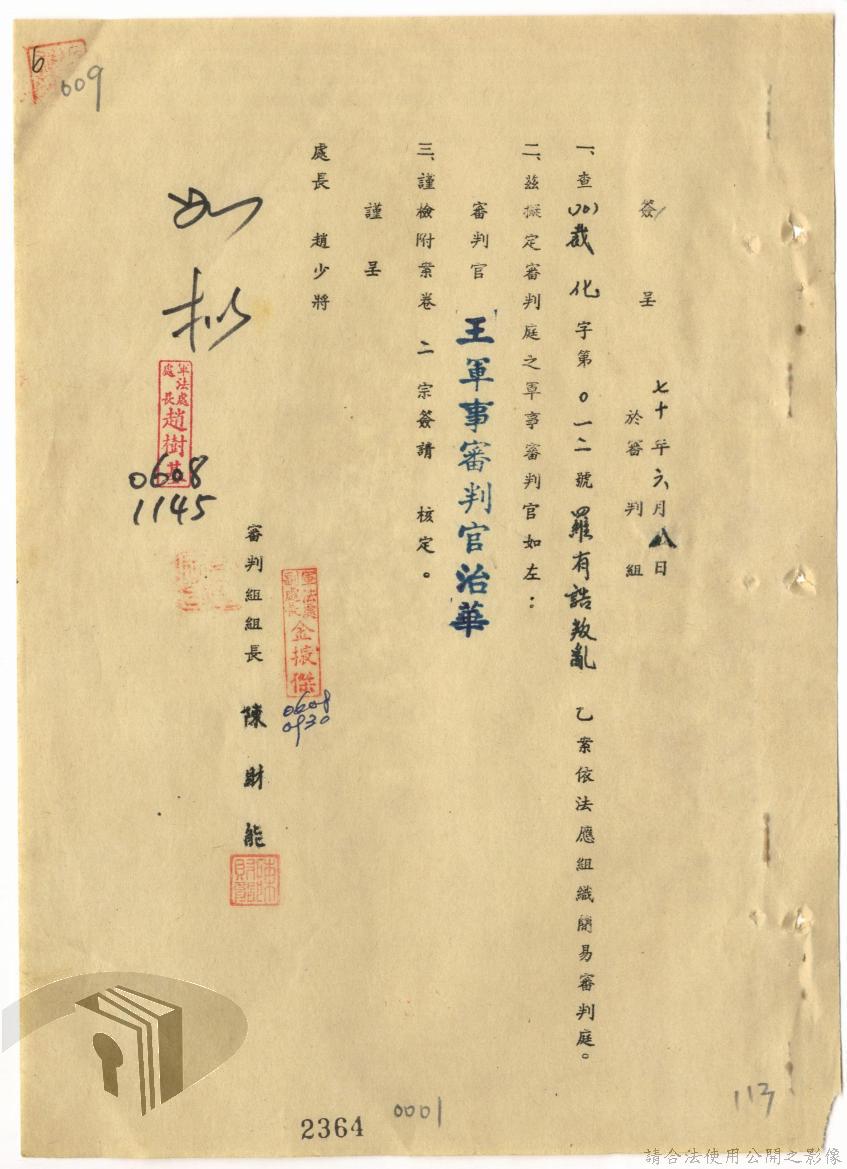 簽呈 七十年六月八日
於審判組
一、查(70)裁化字第0一二號羅有誥叛亂乙案依法應組織簡易審判庭。
二、茲擬定審判庭之軍事審判官如左：
審判官 王軍事審判官治華
三、謹檢附案卷二宗簽請 核定。
謹呈
處長 趙少將
審判組組長 陳財能
軍法處
副處長
金掖傑
0608
0930
如擬
軍法處
處長
趙樹基
0608
1145
6
609
2364
0001
113
請合法使用公開之影像